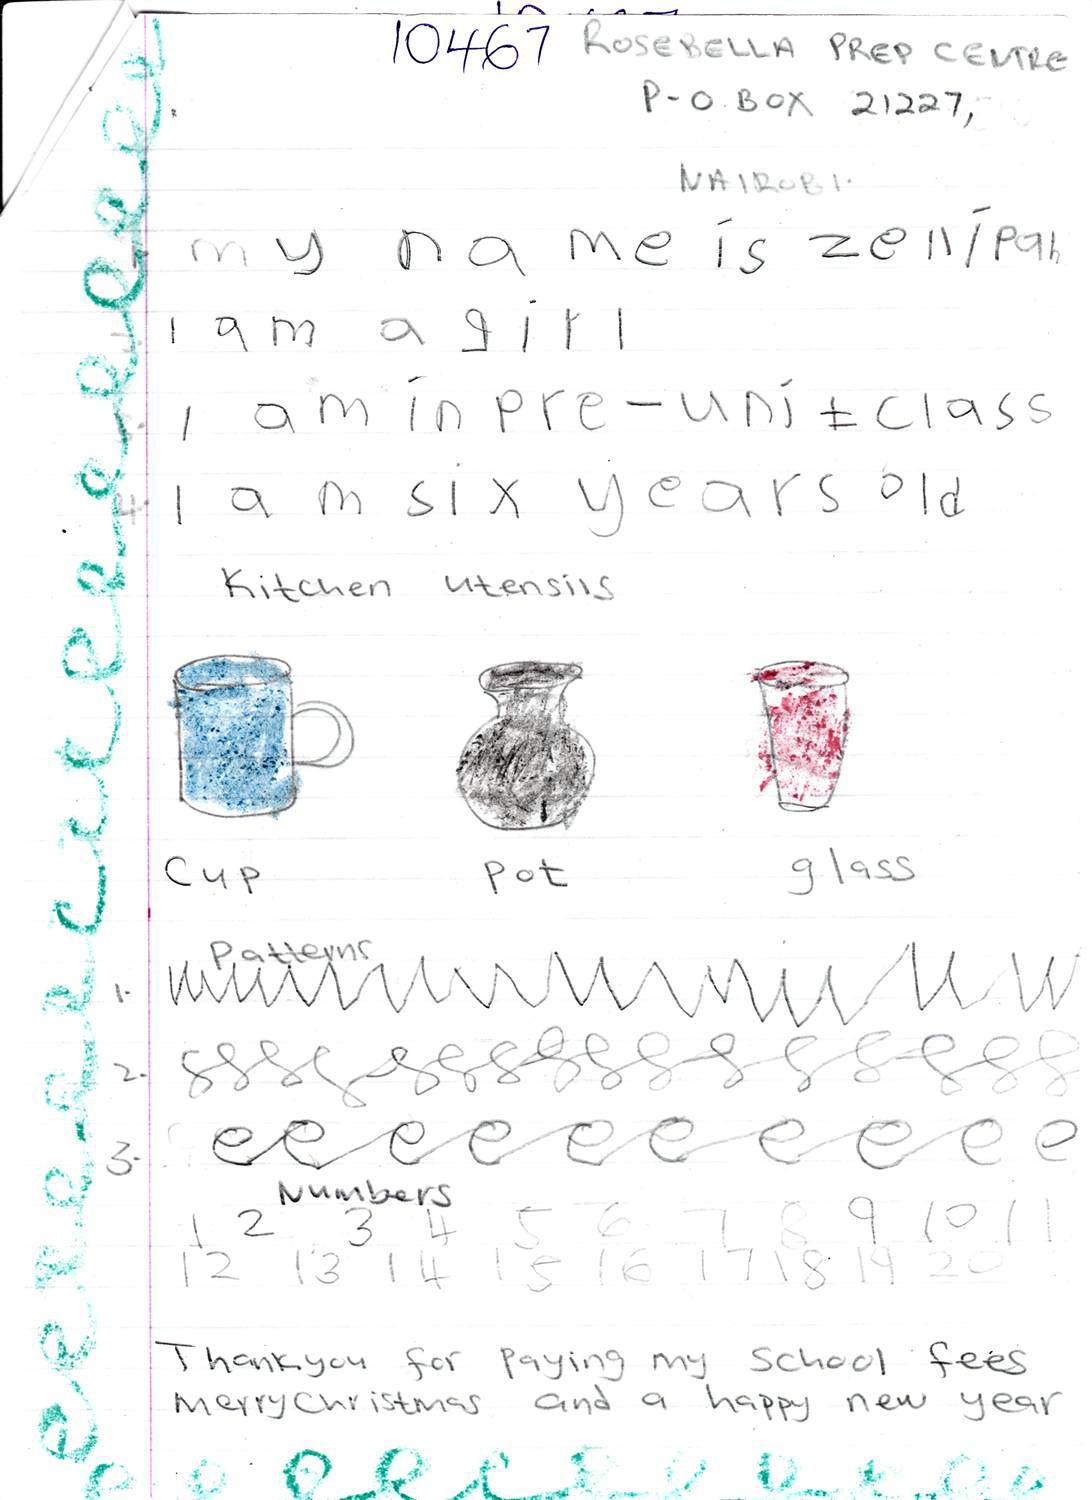 10467 ROSEBELLA PREP CENTRE
P-O BOX 21227,
NAIROBI.
my name is zellipah
I am a girl
I am in pre-unit class
I am six years old
Kitchen utensils
Cup pot glass
Patterns
1.
2.
3.
Numbers
1 2 3 4 5 6 7 8 9 10 11
12 13 14 15 16 17 18 19 20
Thankyou for paying my school fees
merrychristmas and a happy new year